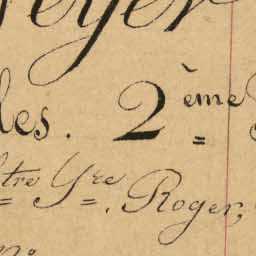 eyer
les. 2ème
tre Yre Roger,